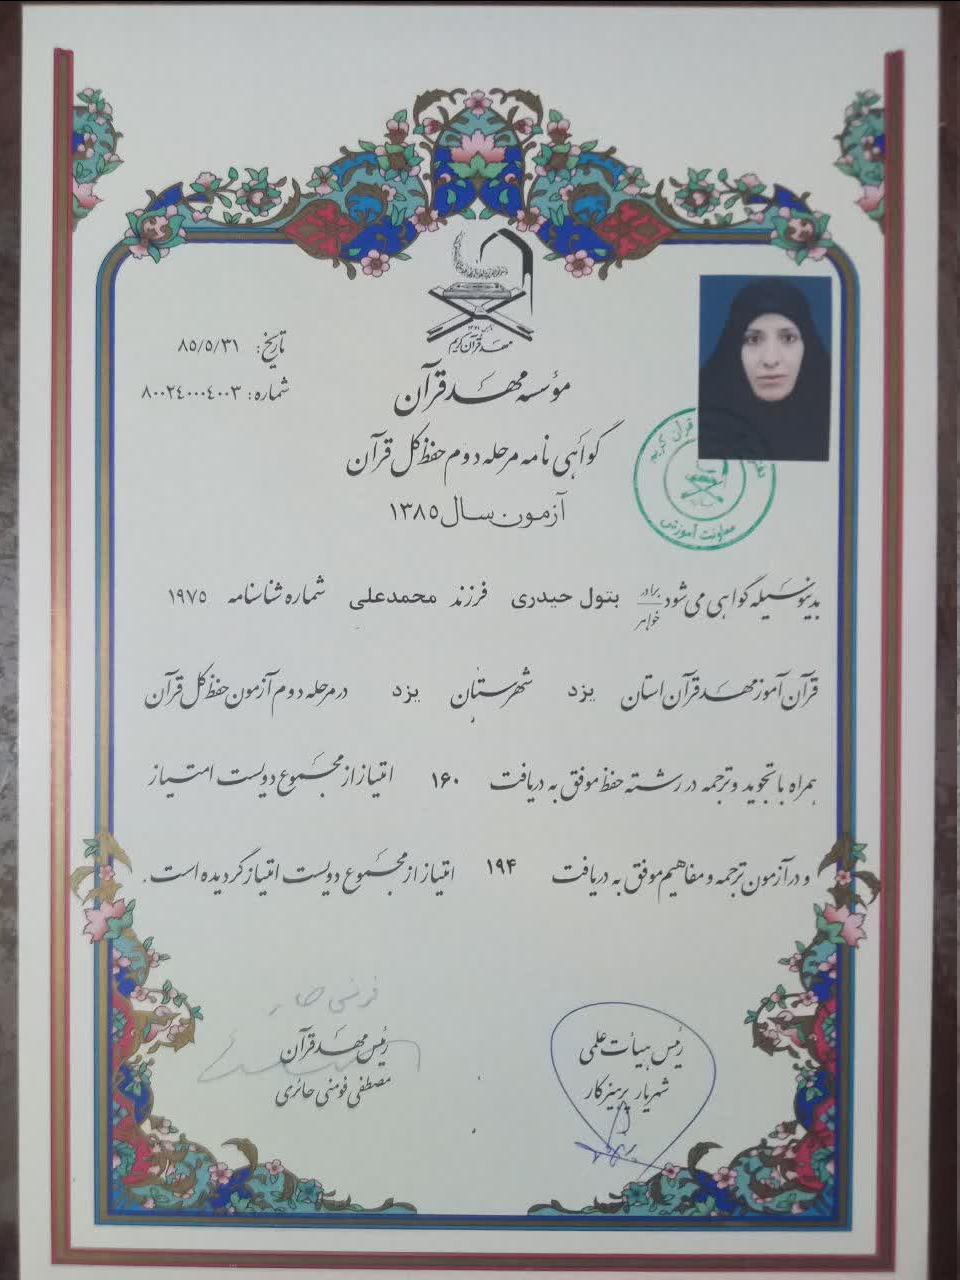 تأسیس ۱۳۶۱
مهد قرآن کریم
تاریخ: ۸۵/۵/۳۱
شماره: ۸۰۰۲۴۰۰۰۴۰۰۳
مؤسسه مهد قرآن
گواهی نامه مرحله دوم حفظ کل قرآن
آزمون سال ۱۳۸۵
قرآن کریم
معاونت آموزش
بدینوسیله گواهی می شود برادر خواهر بتول حیدری فرزند محمدعلی شماره شناسنامه ۱۹۷۵
قرآن آموز مهد قرآن استان یزد شهرستان یزد در مرحله دوم آزمون حفظ کل قرآن
همراه با تجوید و ترجمه در رشته حفظ موفق به دریافت ۱۶۰ امتیاز از مجموع دویست امتیاز
و در آزمون ترجمه و مفاهیم موفق به دریافت ۱۹۴ امتیاز از مجموع دویست امتیاز گردیده است.
رئیس هیأت علمی
شهریار پرهیزکار
رئیس مهد قرآن
مصطفی فومنی حائری